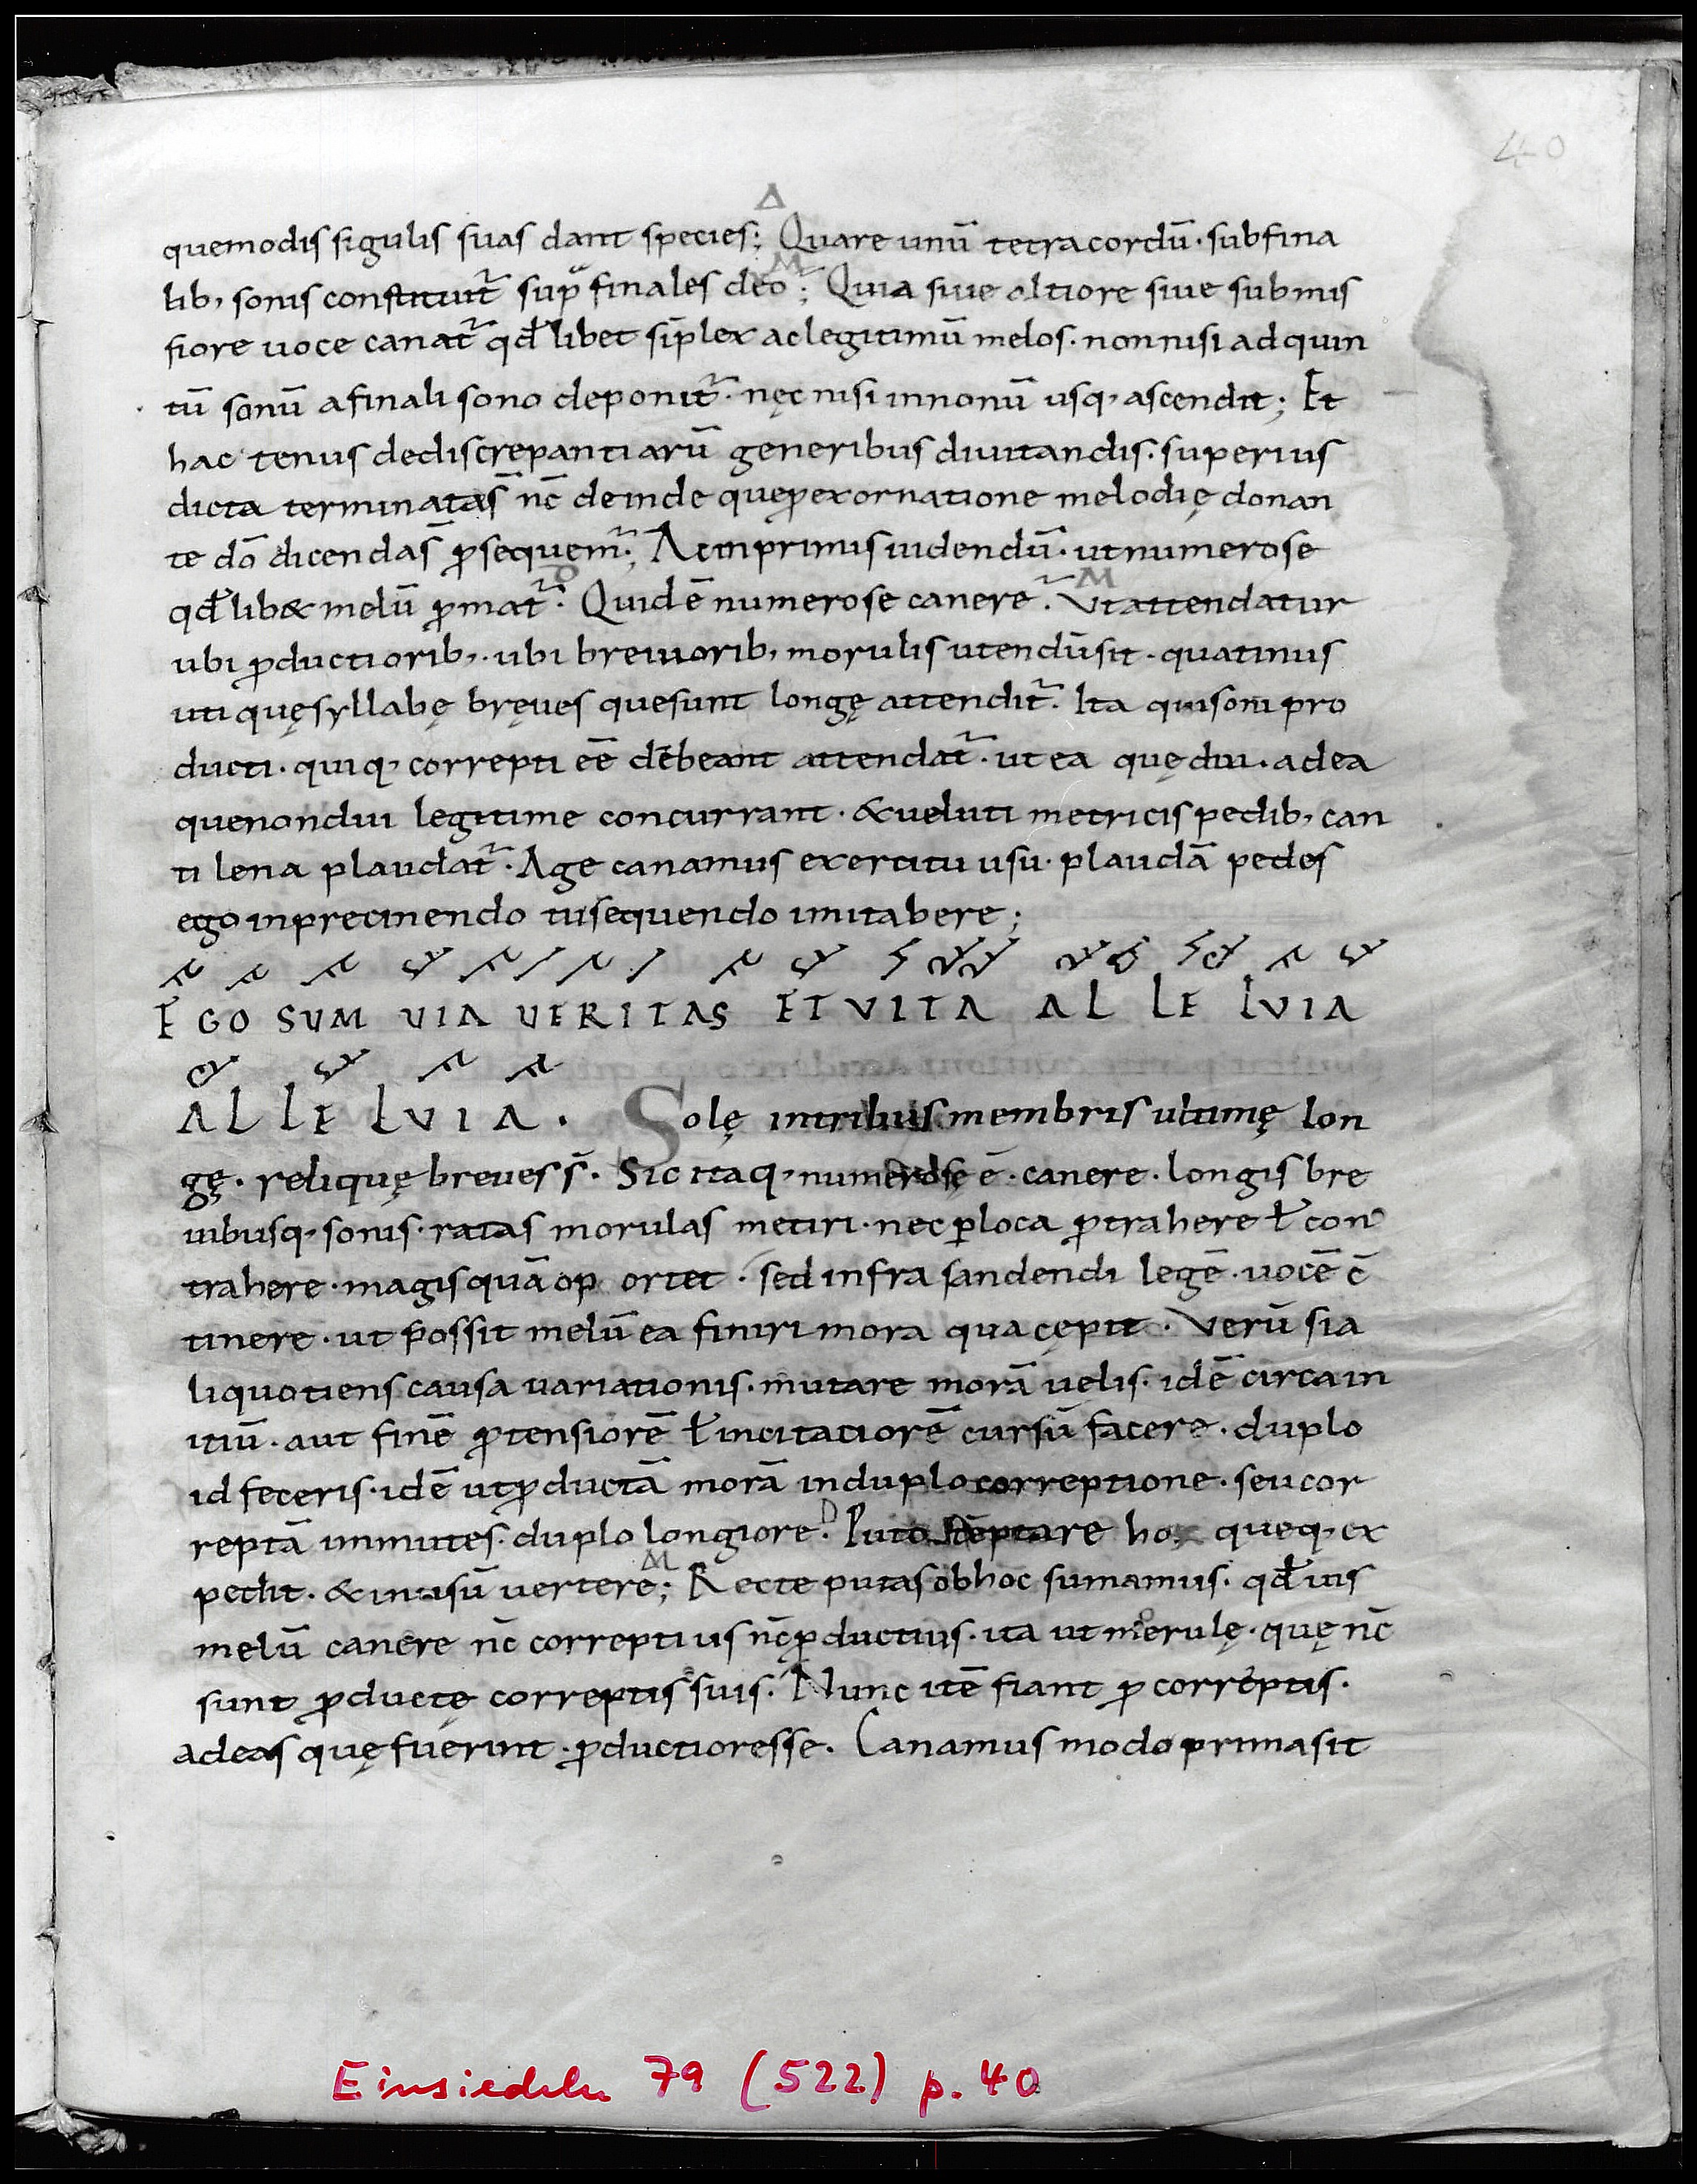 40
Δ
quemodis sigulis suas dant species; Quare unū tetracordū · subfina
M
lib, sonis constituit᷑ sup finales deo᷑; Quia siue altiore siue submis
siore uoce canat᷑ qđ libet siplex ac legitimū melos · non nisi ad quin
tū sonū a finali sono deponit᷑ · nęc nisi in nonū usq, ascendit; Et
hac tenus de discrepantiarū generibus diuitandis · superius
dicta terminatas̄ nc̄ deinde que ꝓ exornatione melodię donan
te dō dicendas̄ ꝓsequem᷑; Ac inprimis uidendū · ut numerose
D M
qđ lib& melū ꝓmat᷑ · Quid ē numerose canere᷑ · Vt attendatur
ubi ꝓductiorib, · ubi breuiorib, morulis utendū sit · quatinus
uti quę syllabę bręues que sunt longę attendit᷑ · Ita qui soni pro
ducti · quiq, correpti eē dēbeant attendat᷑ · ut ea quę diu · ad ea
que non diu legitime concurrant · & ueluti metricis pedib, can
ti lena plaudat᷑ · Age canamus exercitu usu · plaudā pedes
ego in precinendo tu sequendo imitabere;
EGO SUM UIA UERITAS ET VITA AL LE LVIA
AL LE LVIA · Solę in tribus membris ultimę lon
gę · reliquę breues s̄ · Sic itaq, numerose ē · canere · longis bre
uibusq, sonis · ratas morulas metiri · nec ꝑ loca ꝓtrahere ł con
trahere · magis quā op ortet · sed infra sandendi legē · uocē c̄
tinere · ut possit melū ea finiri mora qua cępit · Verū si a
liquotiens causa uariationis · mutare morā uelis · idē circa in
itiū · aut finē ꝓtensiorē ł incitatiorē cursū facere · duplo
id feceris · idē ut ꝓductā morā in duplo correptione · seu cor
D
reptā immutes · duplo longiore · Puto tēptare hoc queq, ex
M
pedit · & in usū uertere; Recte putas ob hoc sumamus · qđ uis
melū canere nc̄ correptius nc̄ ꝓductius · ita ut merulę · quę nc̄
sunt ꝓductę correptis suis · Nunc itē fiant ꝓ correptis ·
ad eas quę fuerint · ꝓductioresse · Canamus modo prima sit
Einsiedeln 79 (522) p. 40